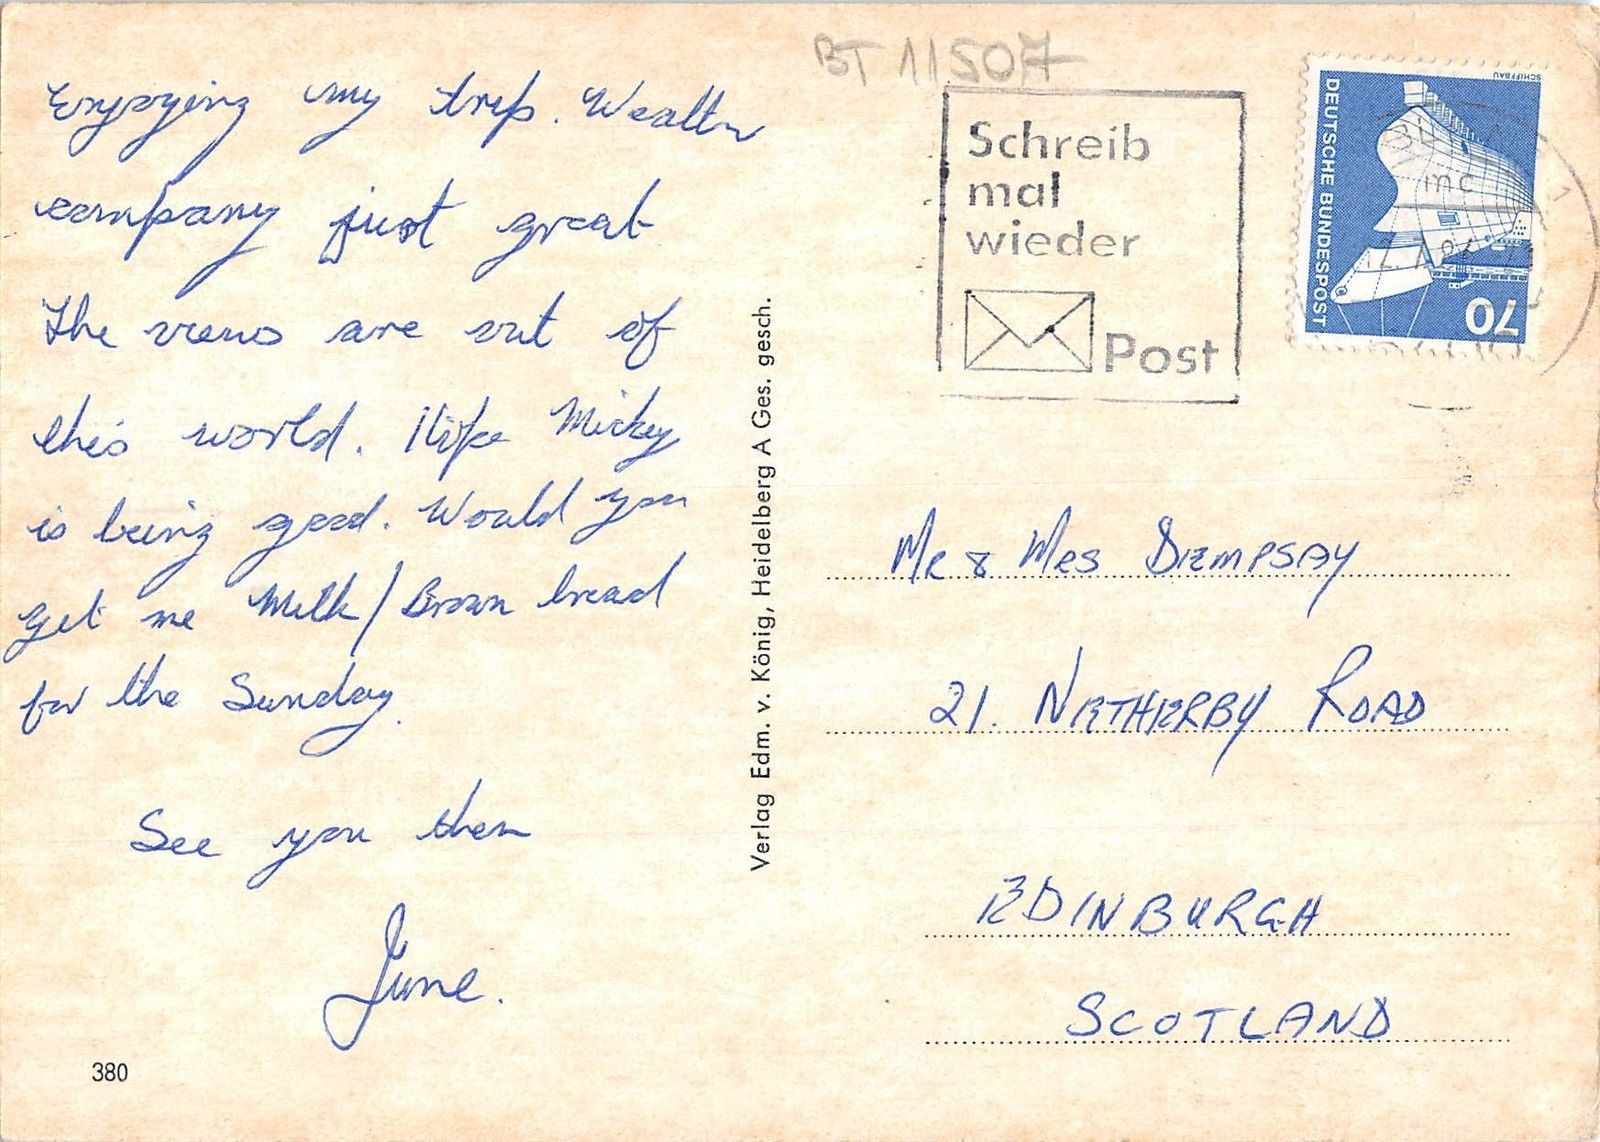 Enjoying my trip. Weather
company just great
The views are out of
this world. I hope Mickey
is being good. Would you
get me Milk/Brown bread
for the Sunday.
See you then
June.
380
Verlag Edm. v. König, Heidelberg A Ges. gesch.
BT 11507
Schreib
mal
wieder
Post
SCHIFFBAU
DEUTSCHE BUNDESPOST
70
mc
Mr & Mrs DEMPSAY
21. NETHERBY ROAD
EDINBURGH
SCOTLAND